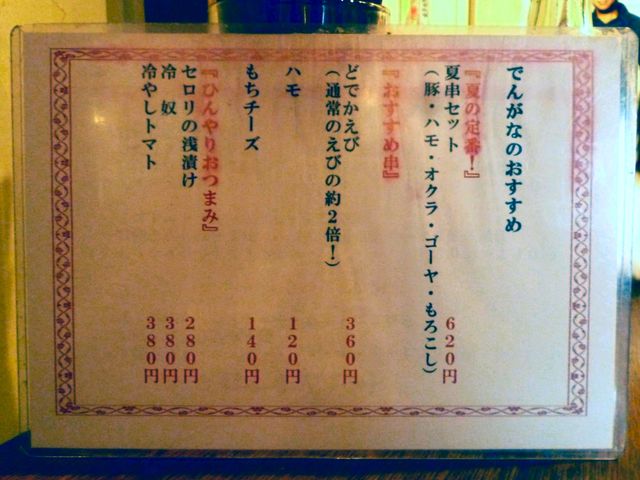 でんがなのおすすめ
『夏の定番！』
夏串セット 620円
（豚・ハモ・オクラ・ゴーヤ・もろこし）
『おすすめ串』
どでかえび 360円
（通常のえびの約2倍！）
ハモ 120円
もちチーズ 140円
『ひんやりおつまみ』
セロリの浅漬け 280円
冷奴 380円
冷やしトマト 380円